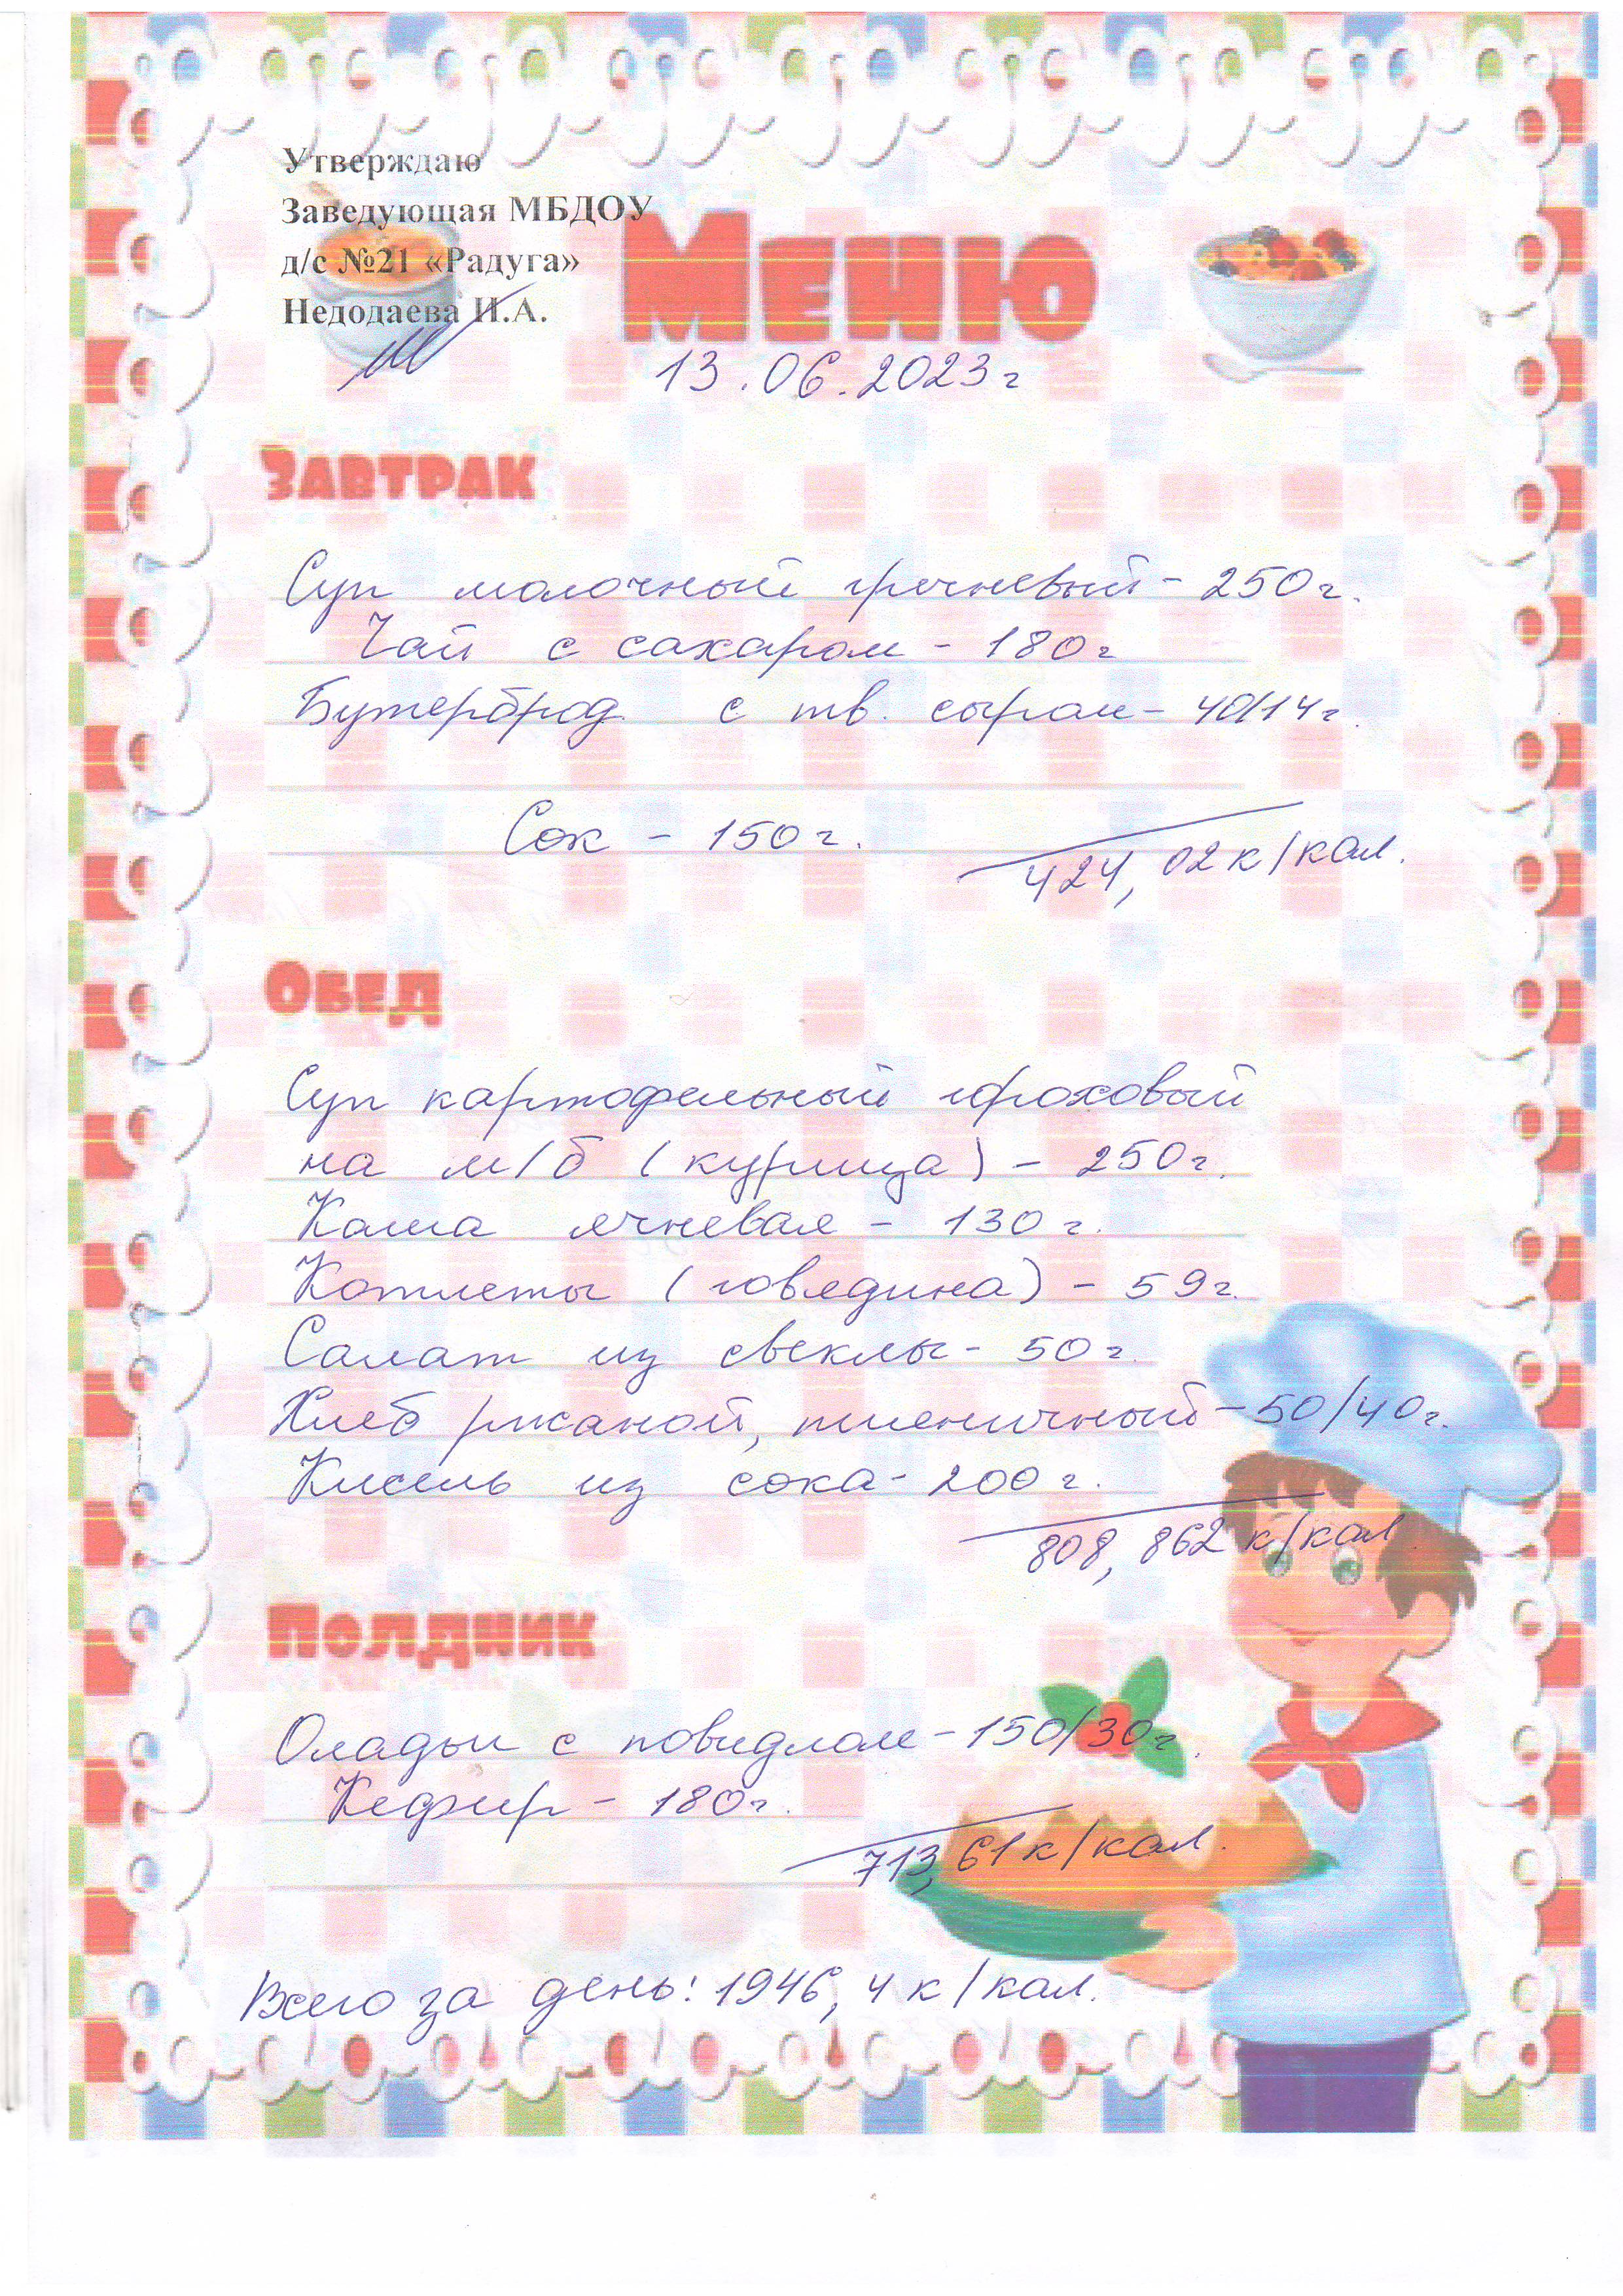 Утверждаю
Заведующая МБДОУ
д/с №21 «Радуга»
Недодаева И.А.
Меню
13.06.2023г
Завтрак
Суп молочный гречневый - 250г.
Чай с сахаром - 180г
Бутерброд с тв. сыром - 40/14г.
Сок - 150г.
424,02 к/кал.
Обед
Суп картофельный гороховый
на м/б (курица) - 250г.
Каша ячневая - 130г.
Котлеты (говядина) - 59г.
Салат из свеклы - 50г.
Хлеб ржаной, пшеничный - 50/40г.
Кисель из сока - 200г.
808,862 к/кал
Полдник
Оладьи с повидлом - 150/30г.
Кефир - 180г.
713,61 к/кал.
Всего за день: 1946,4 к/кал.